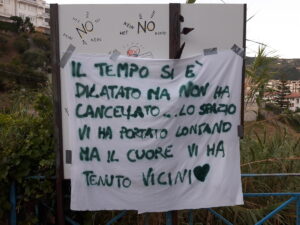 NO
NEIN
NO
NEIN
NO
IL TEMPO SI È
DILATATO MA NON HA
CANCELLATO...LO SPAZIO
VI HA PORTATO LONTANO
MA IL CUORE VI HA
TENUTO VICINI